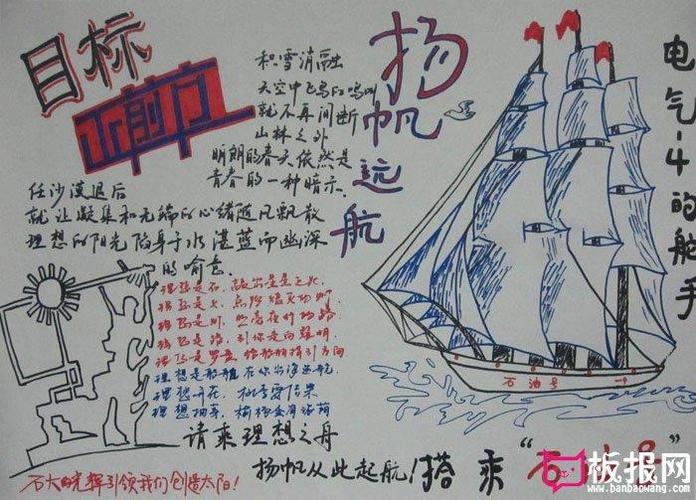 目标
正前方
积雪消融
天空中飞鸟的鸣叫
就不再间断
山林之外
明朗的春天依然是
青春的一种暗示.
任沙漠退后
就让凝集和无端的心绪随风飘散
理想的阳光陷身于水湛蓝而幽深
的喻意.
理想是石,敲出星星之火.
理想是火,点燃熄灭的灯.
理想是灯,照亮夜行的路.
理想是路,引你走向黎明.
理想是罗盘,给船舶指引方向
理想是船舶
理想开花,桃李要结果
理想抽芽,榆杨会有浓荫
请乘理想之舟
扬帆从此起航!搭乘
石大的光辉引领我们创造太阳!
扬帆远航
电气-4的舵手
石油号
板报网
www.banbaowang.com